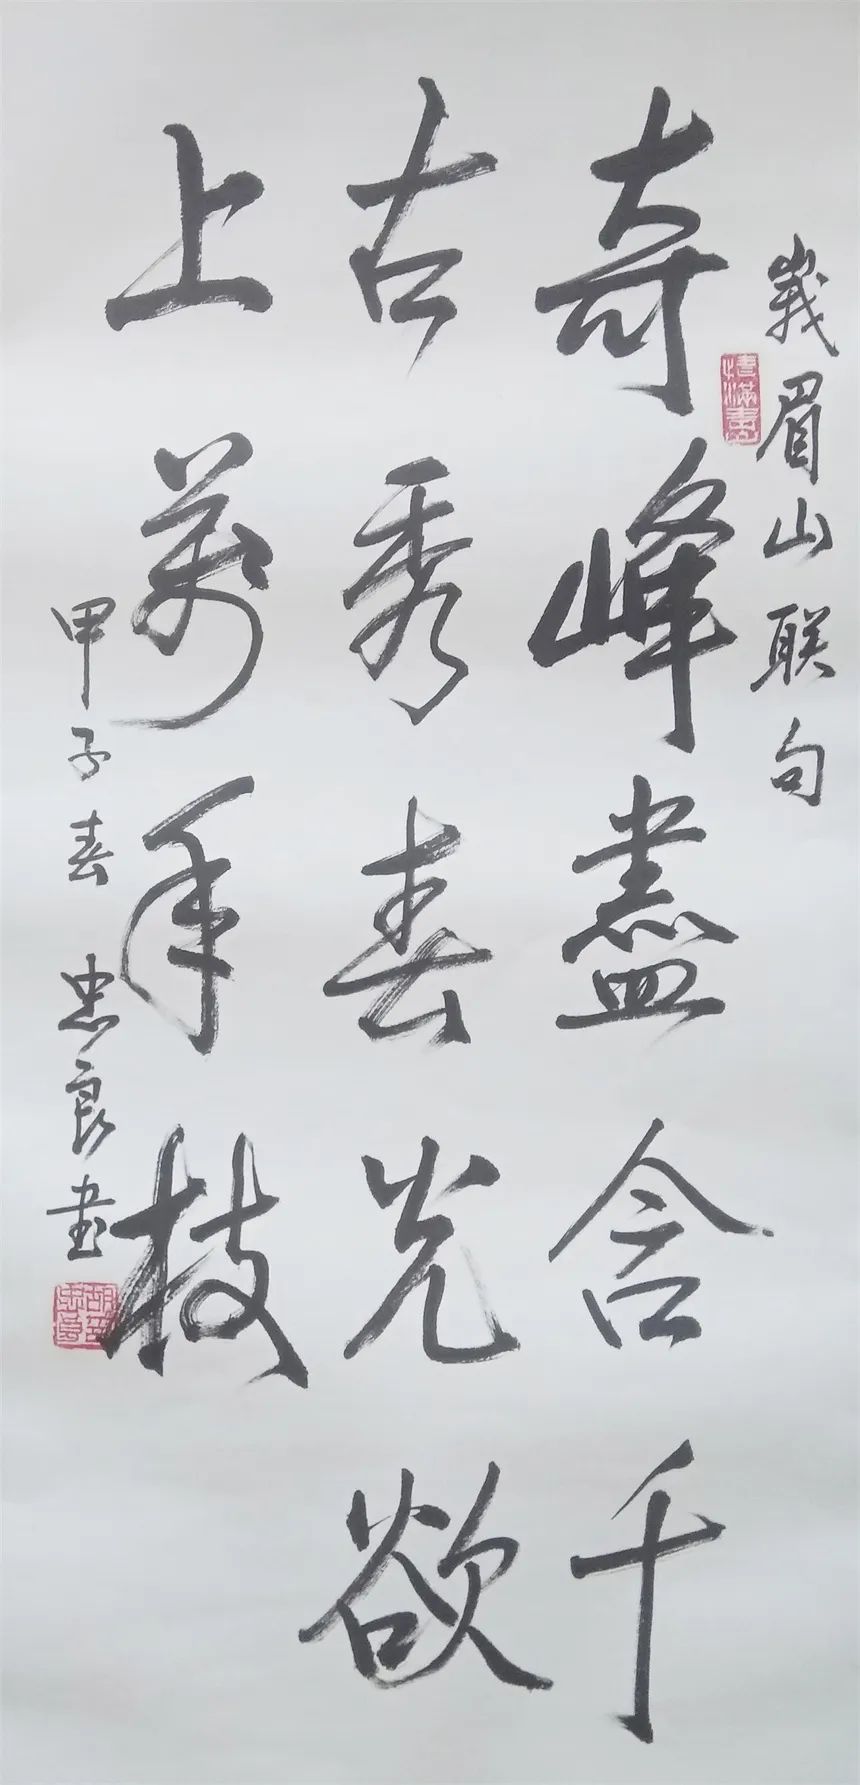 峩眉山联句
奇峰盡含千
古秀春光欲
上萬年枝
甲子春 忠良書